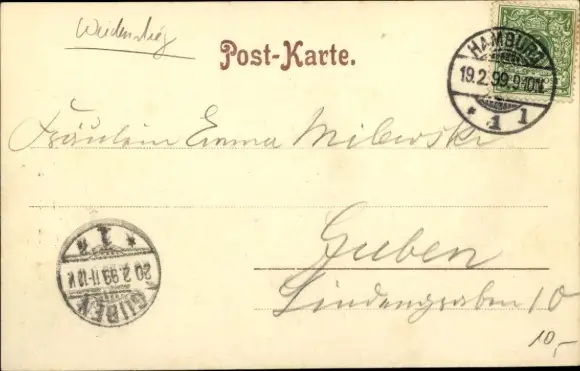 Weidenstieg
Post-Karte.
HAMBURG
19.2.99.9-10N.
* 1 1
Fräulein Emma Milewski
Guben
Lindengraben 10
10,-
GUBEN
20.2.99.11-12V.
* 1 *